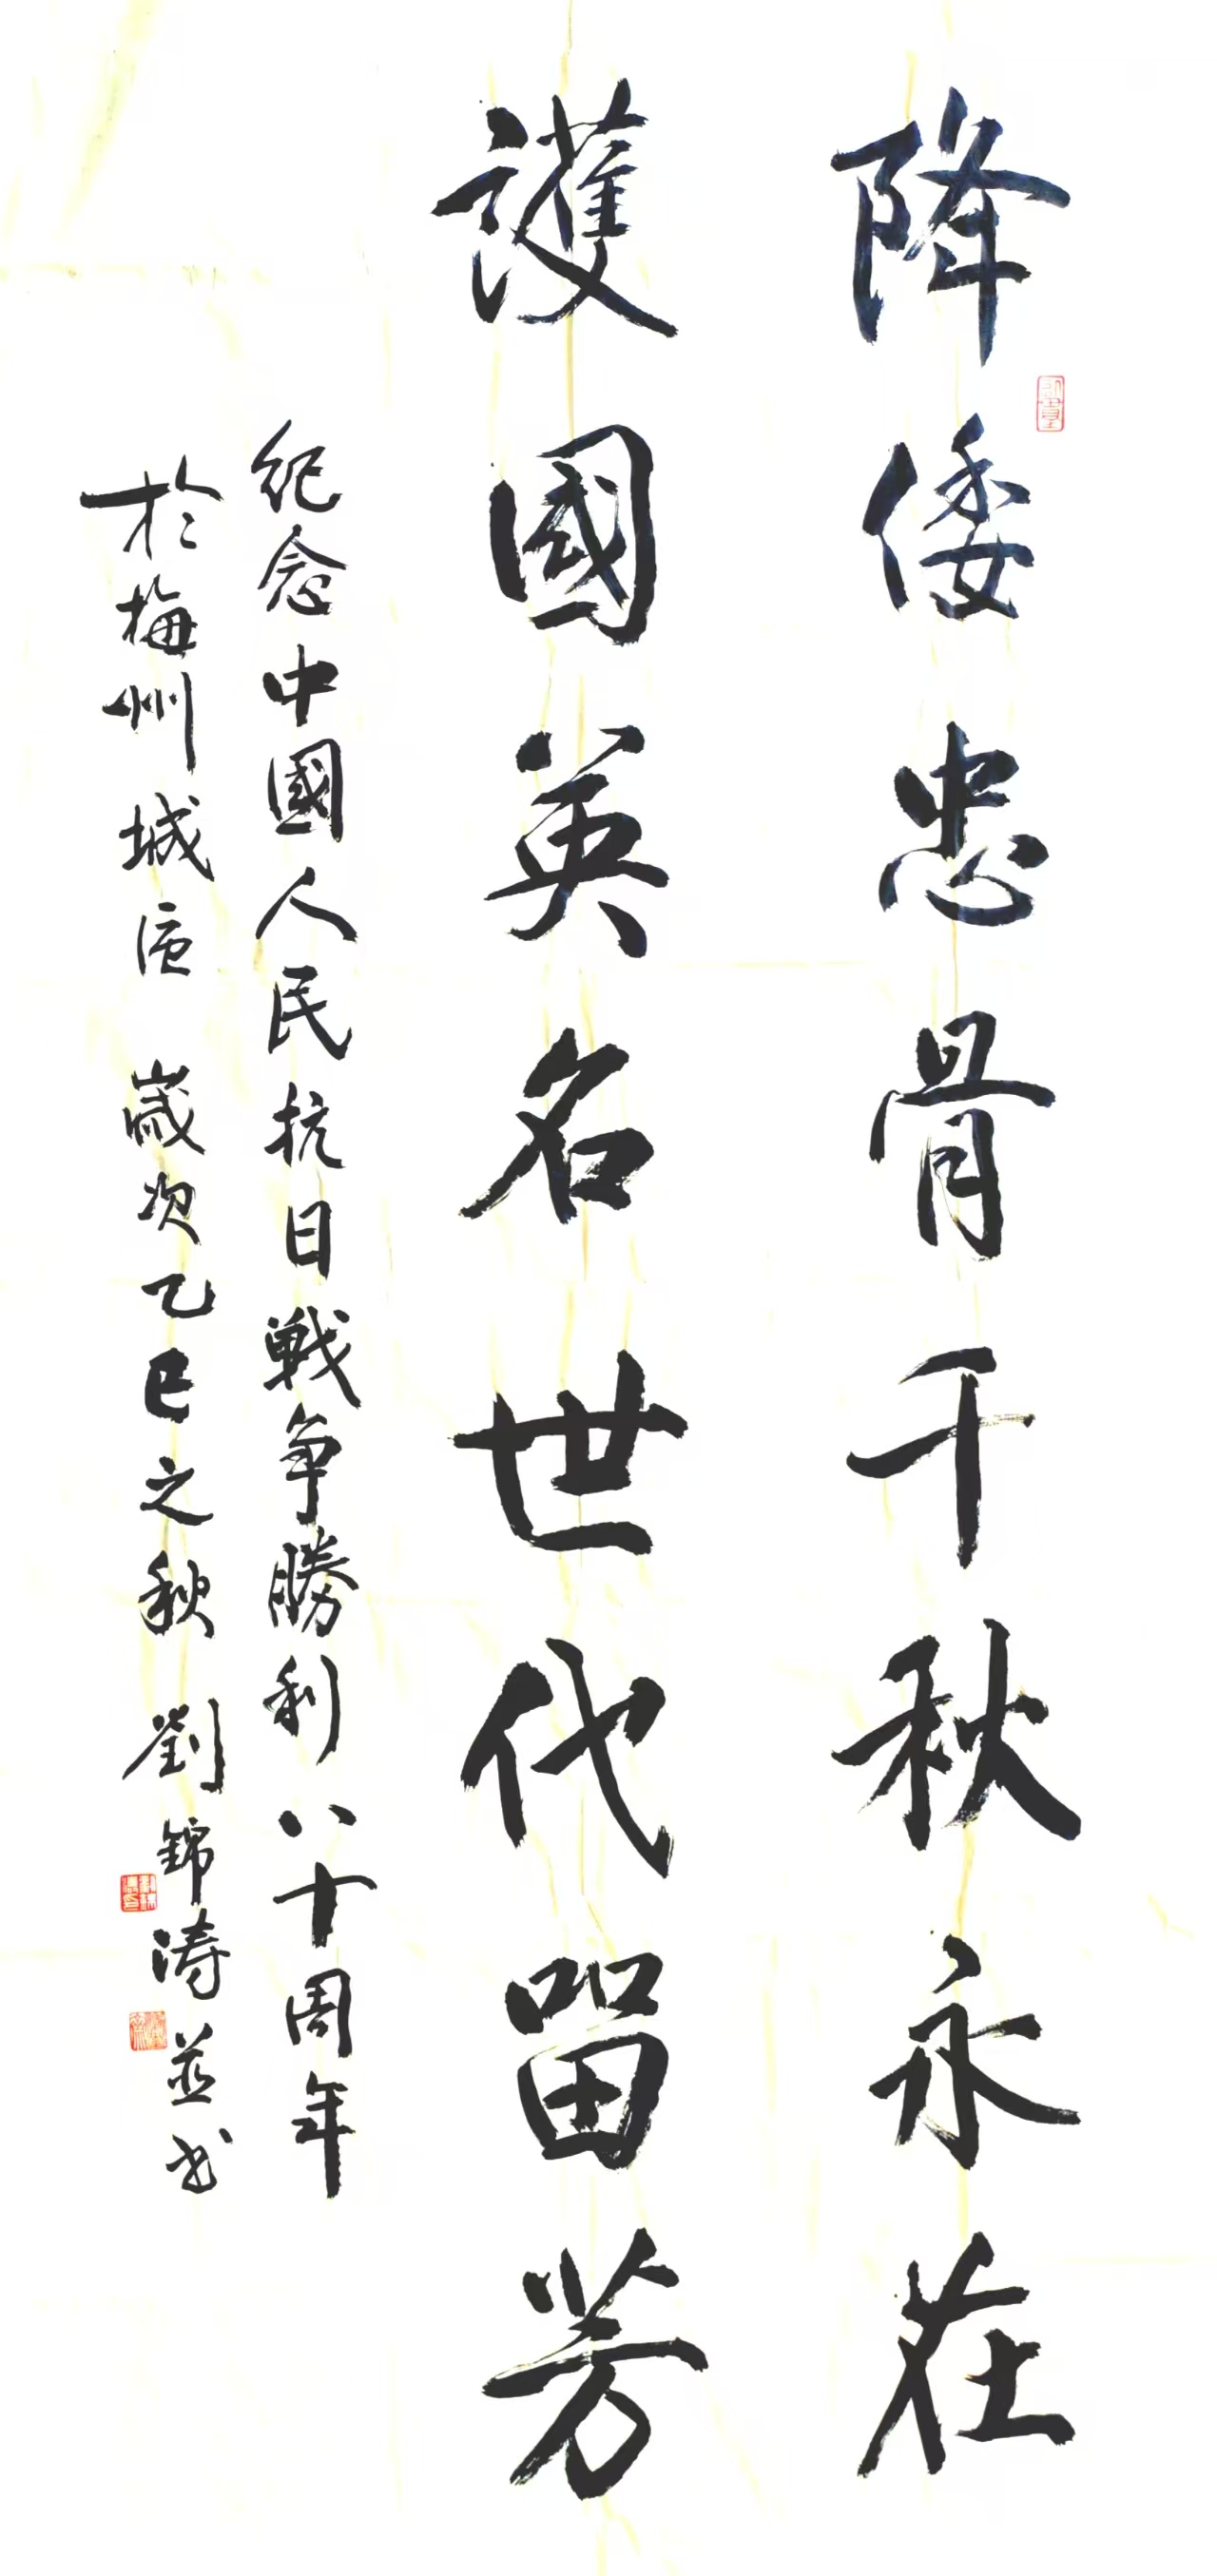 降倭忠骨千秋永在
護國英名世代留芳
紀念中國人民抗日戦争勝利八十周年
於梅州城區 歲次乙巳之秋 劉錦涛並书